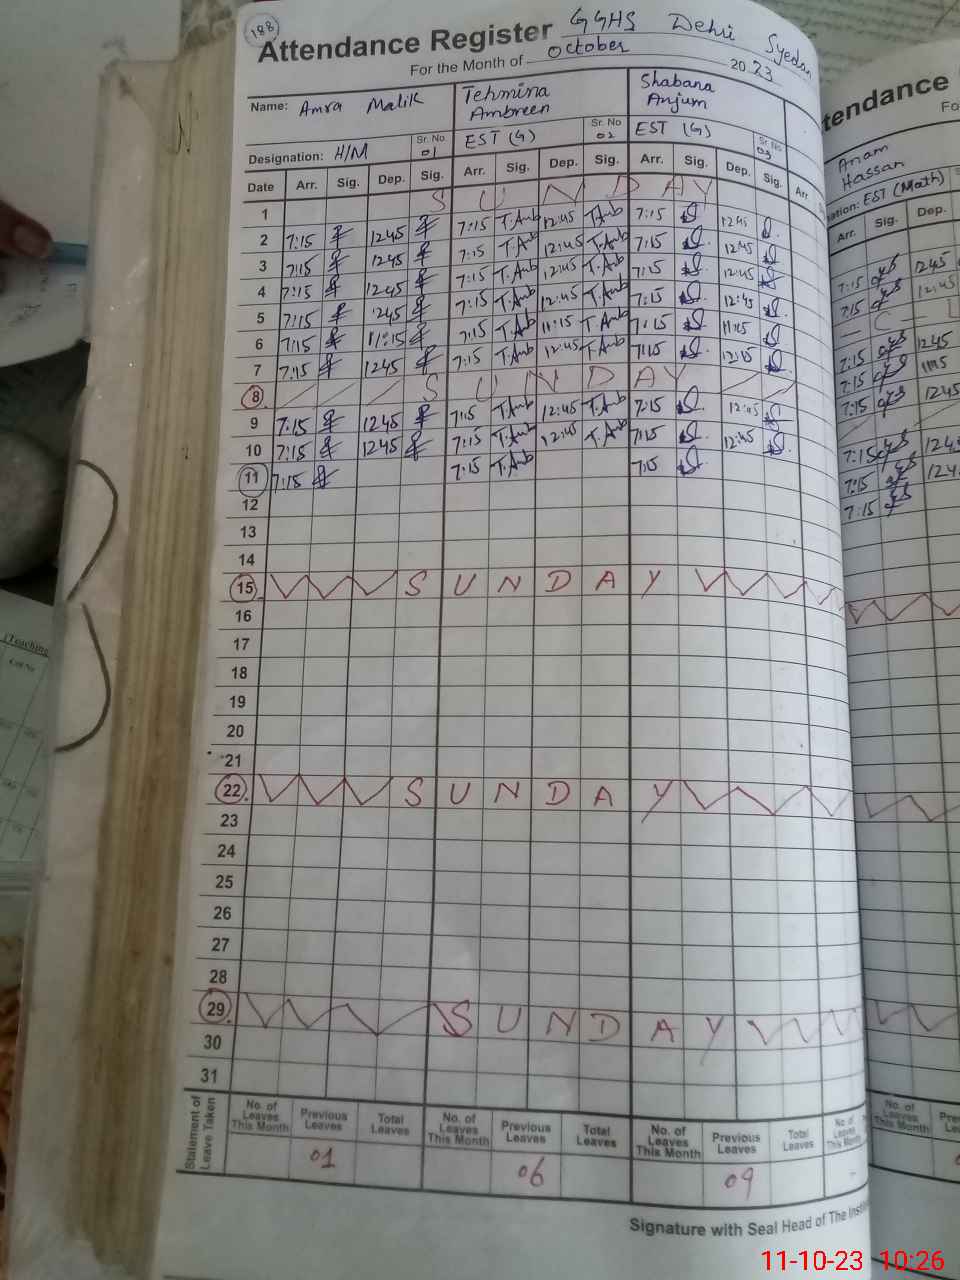 188
Attendance Register GGHS Dehri Syedan
For the Month of October 2023
Name: Amra Malik Tehmina Ambreen Shabana Anjum
Designation: H/M Sr. No 01 EST (G) Sr. No 02 EST (G) Sr. No 03
Date Arr. Sig. Dep. Sig. Arr. Sig. Dep. Sig. Arr. Sig. Dep. Sig. Arr
1 SUNDAY
2 7:15 1245 7:15 T.Amb 12:45 T.Amb 7:15 1245
3 7:15 1245 7:15 T.Amb 12:45 T.Amb 7:15 1245
4 7:15 1245 7:15 T.Amb 12:45 T.Amb 7:15 12:45
5 7:15 245 7:15 T.Amb 12:45 T.Amb 7:15 12:45
6 7:15 11:15 7:15 T.Amb 11:15 T.Amb 7:15 11:15
7 7:15 1245 7:15 T.Amb 12:45 T.Amb 7:15
8 SUNDAY
9 7:15 1245 7:15 T.Amb 12:45 T.Amb 7:15 12:45
10 7:15 1245 7:15 T.Amb 12:45 T.Amb 7:15 12:45
11 7:15 7:15 T.Amb 7:15
12
13
14
15 SUNDAY
16
17
18
19
20
21
22 SUNDAY
23
24
25
26
27
28
29 SUNDAY
30
31
Statement of Leave Taken
No. of Leaves This Month Previous Leaves Total Leaves No. of Leaves This Month Previous Leaves Total Leaves No. of Leaves This Month Previous Leaves Total Leaves No. of Leaves This Month
01 06 09
Signature with Seal Head of The
tendance
Fo
Anam
Hassan
ation: EST (Math)
Arr. Sig. Dep.
7:15 1245
7:15 12:45
7:15 1245
7:15 1115
7:15 1245
7:15 124
7:15 124
7:15
No. of Leaves This Month
(Teaching
11-10-23 10:26